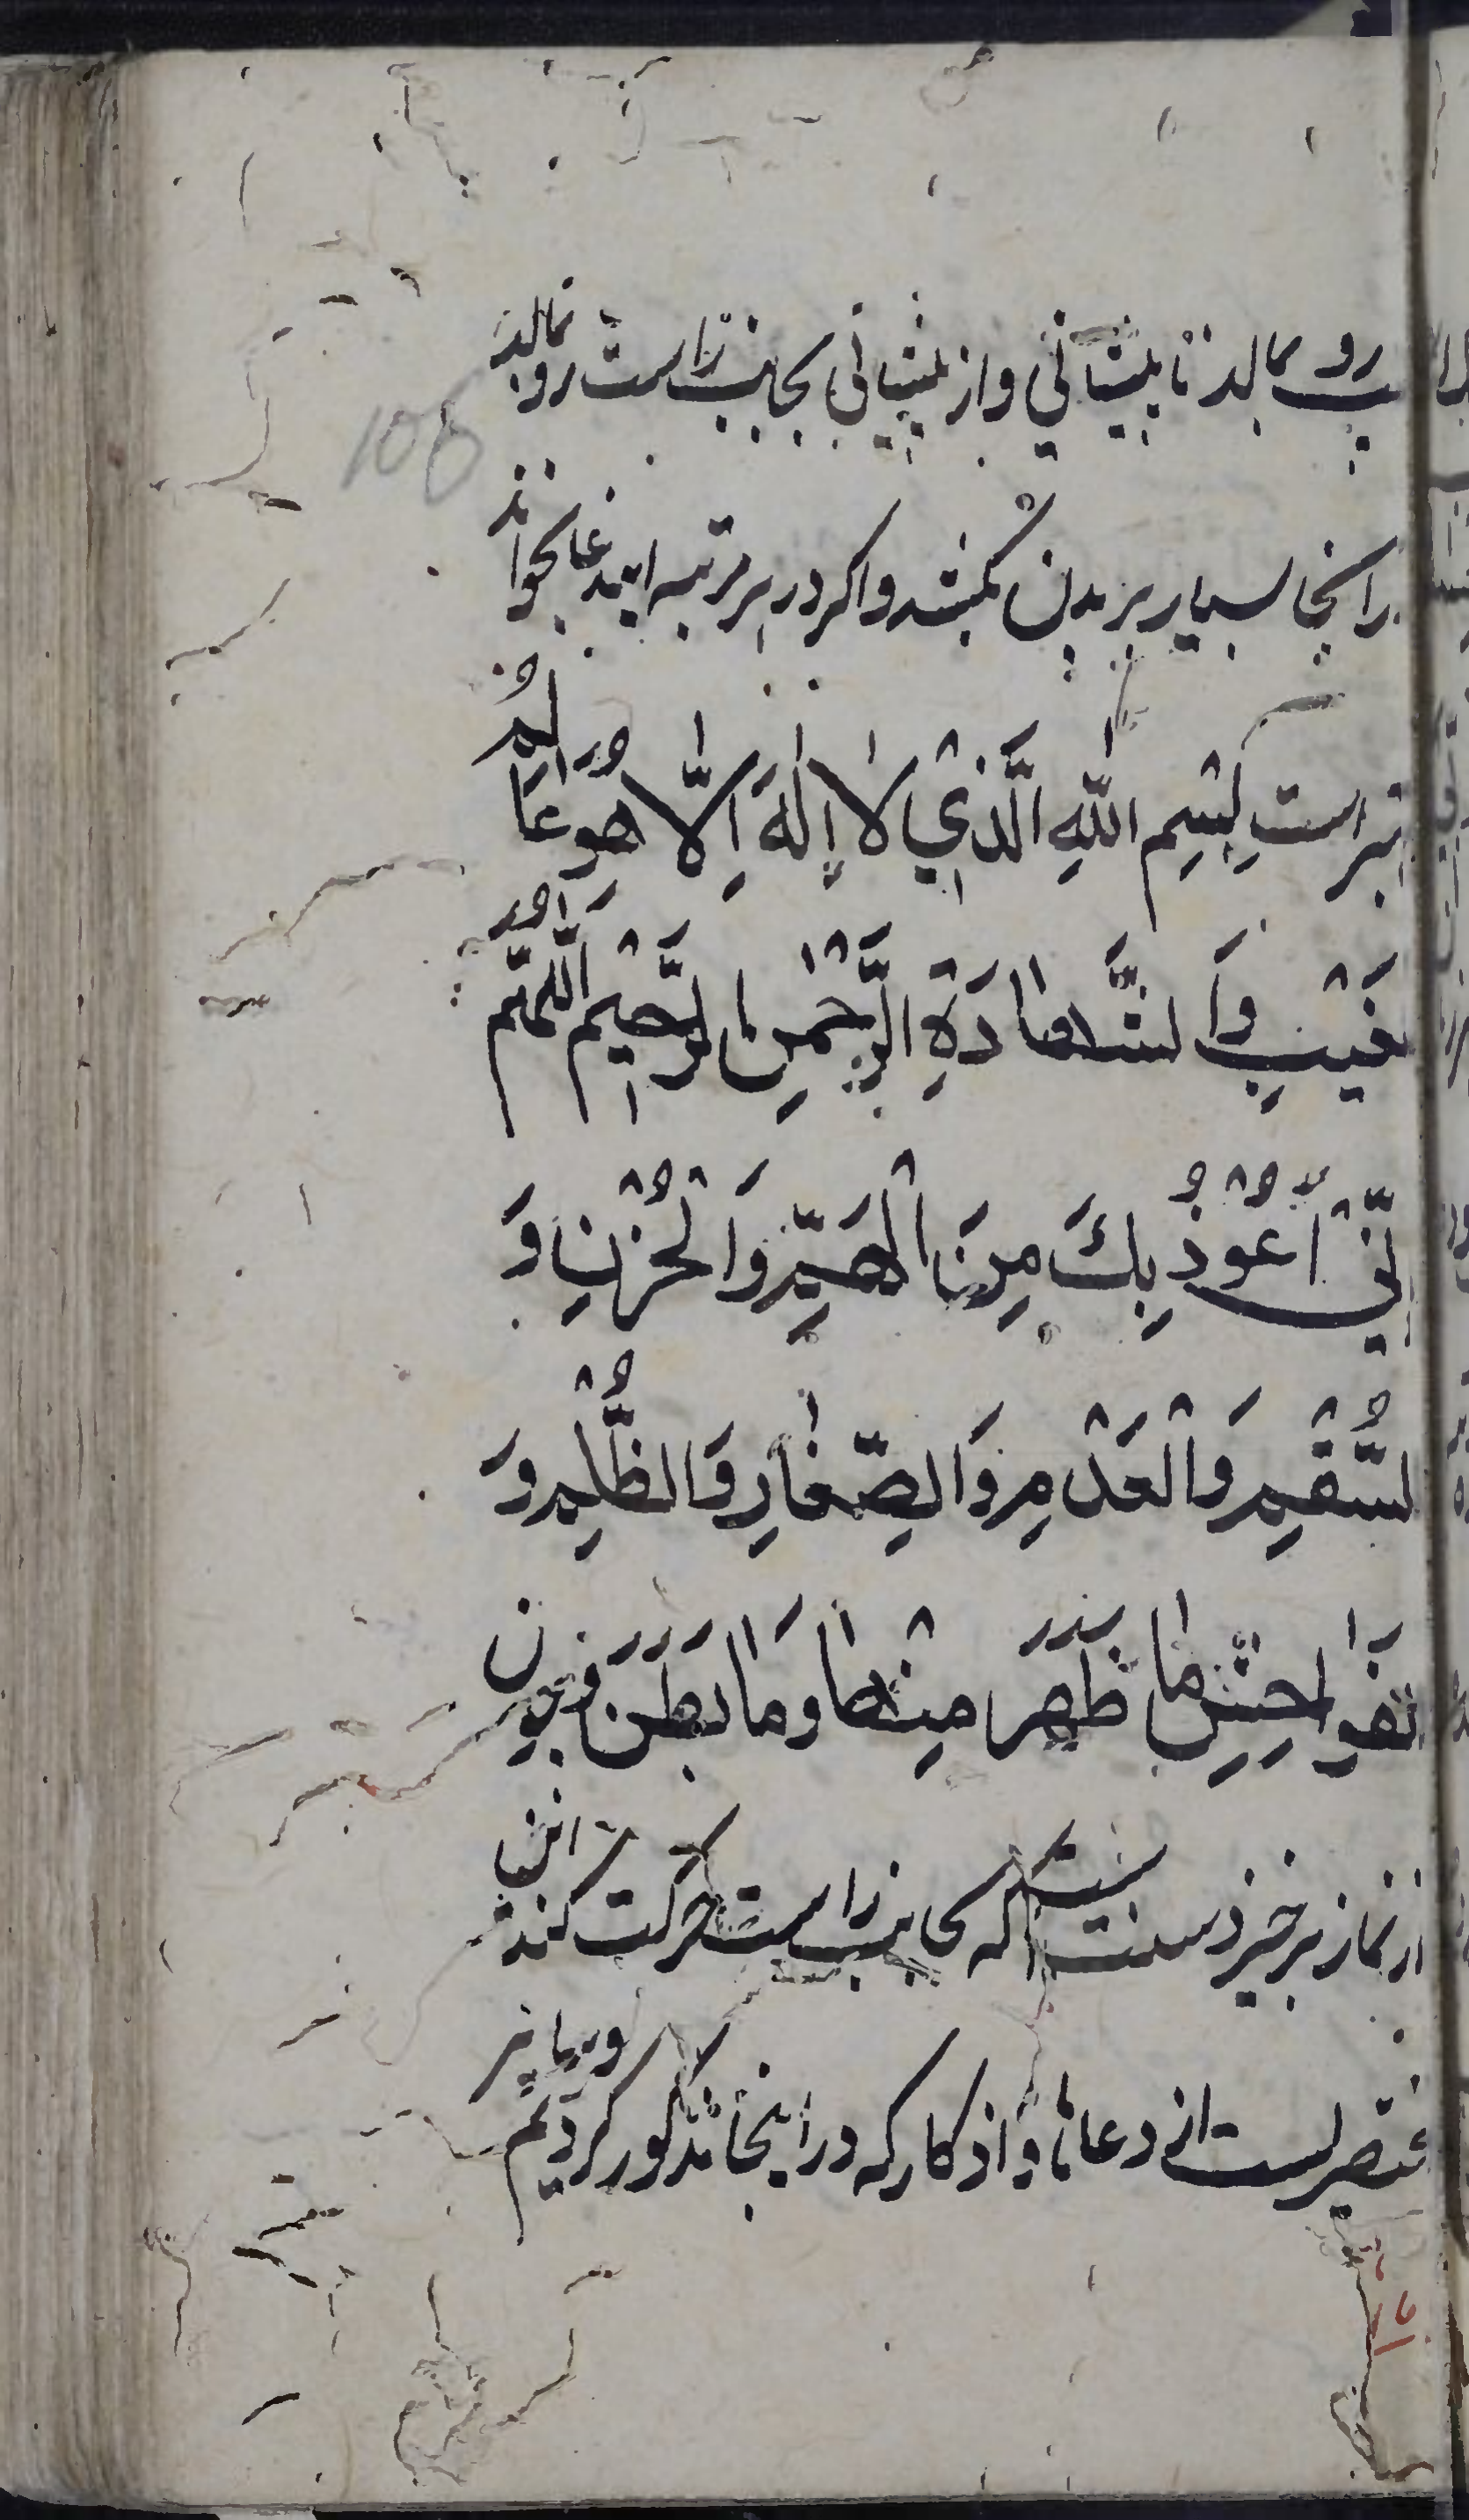 رو بمالد تا پیشانی و از پیشانی بجانب راست رو بمالد
106
از آنجا بسیار بر بدن بکشد و اگر در هر مرتبه ایندعا بخواند
بهتر است بِسْمِ اللّٰهِ الَّذِي لَا إِلٰهَ اِلَّا هُوَ عَالِمُ
الغَيْبِ وَالشَّهَادَةِ الرَّحْمٰنِ الرَّحِيْمِ اَللّٰهُمَّ
اِنِّيْ أَعُوْذُ بِكَ مِنَ الْهَمِّ وَالْحُزْنِ وَ
السُّقْمِ وَالْعَدْمِ وَالصِّغَارِ وَالظُّلْمِ وَ
الفَوَاحِشِ مَا ظَهَرَ مِنْهَا وَمَا بَطَنَ و چون
از نماز برخیزد سنت است که بجانب راست حرکت کند
مختصریست از دعاها و اذکار که در اینجا مذکور کردیم